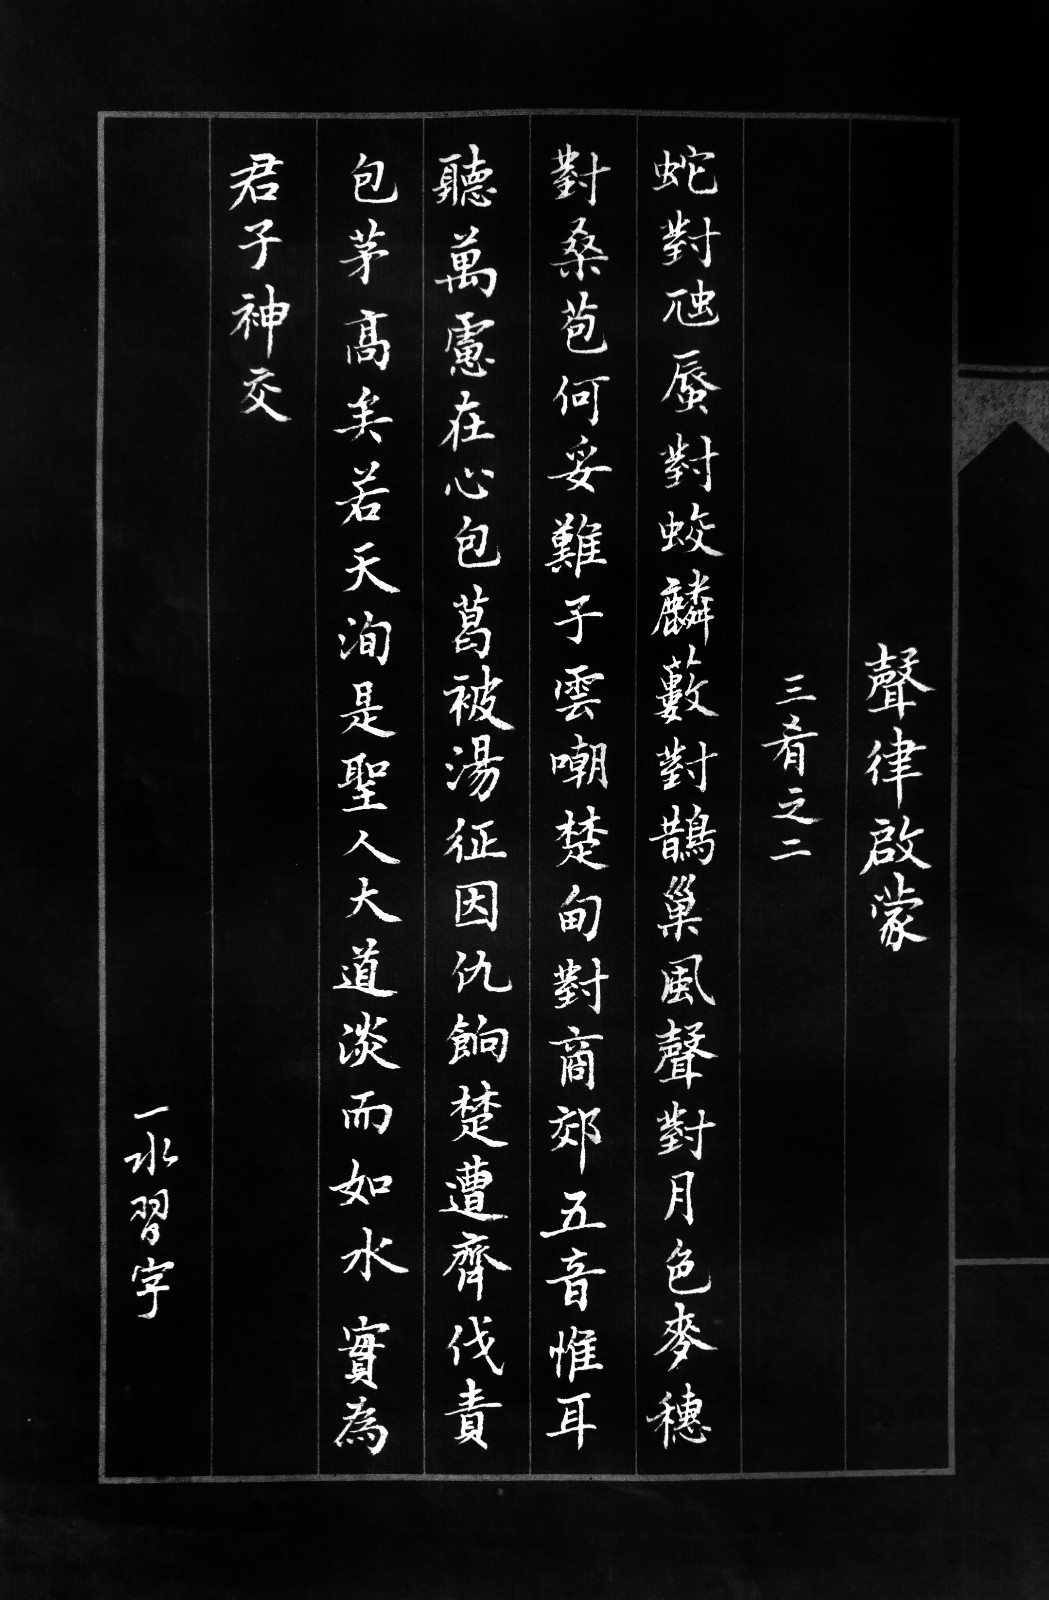 聲律啟蒙
三肴之二
蛇對虺蜃對蛟麟藪對鵲巢風聲對月色麥穗
對桑苞何妥難子雲嘲楚甸對商郊五音惟耳
聽萬慮在心包葛被湯征因仇餉楚遭齊伐責
包茅高矣若天洵是聖人大道淡而如水實為
君子神交
一水習字